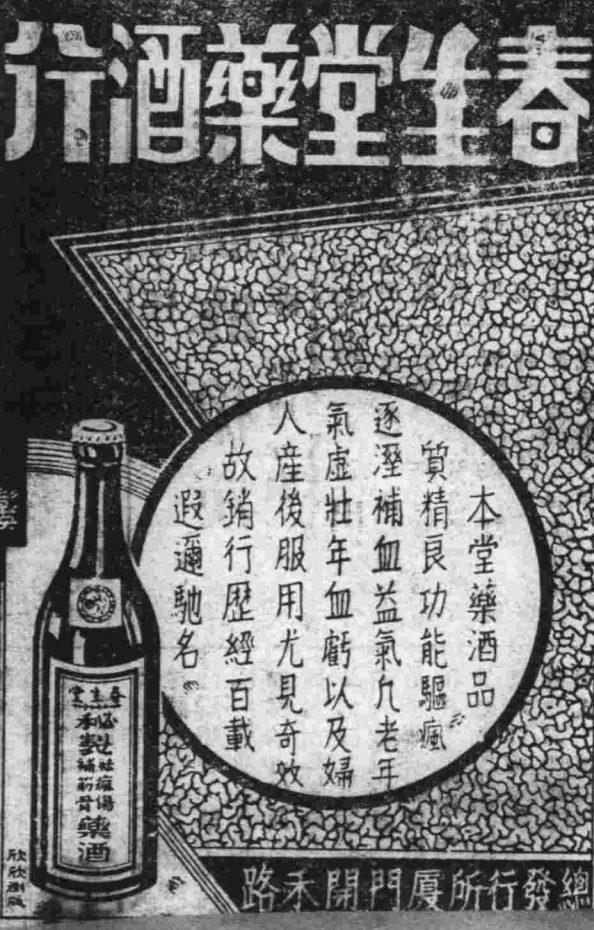 春生堂藥酒行
本堂藥酒品
質精良功能驅瘋
逐溼補血益氣凡老年
氣虛壯年血虧以及婦
人產後服用尤見奇效
故銷行歷經百載
遐邇馳名。
春生堂
秘製
祛瘋傷
補筋骨
藥酒
總發行所廈門開禾路